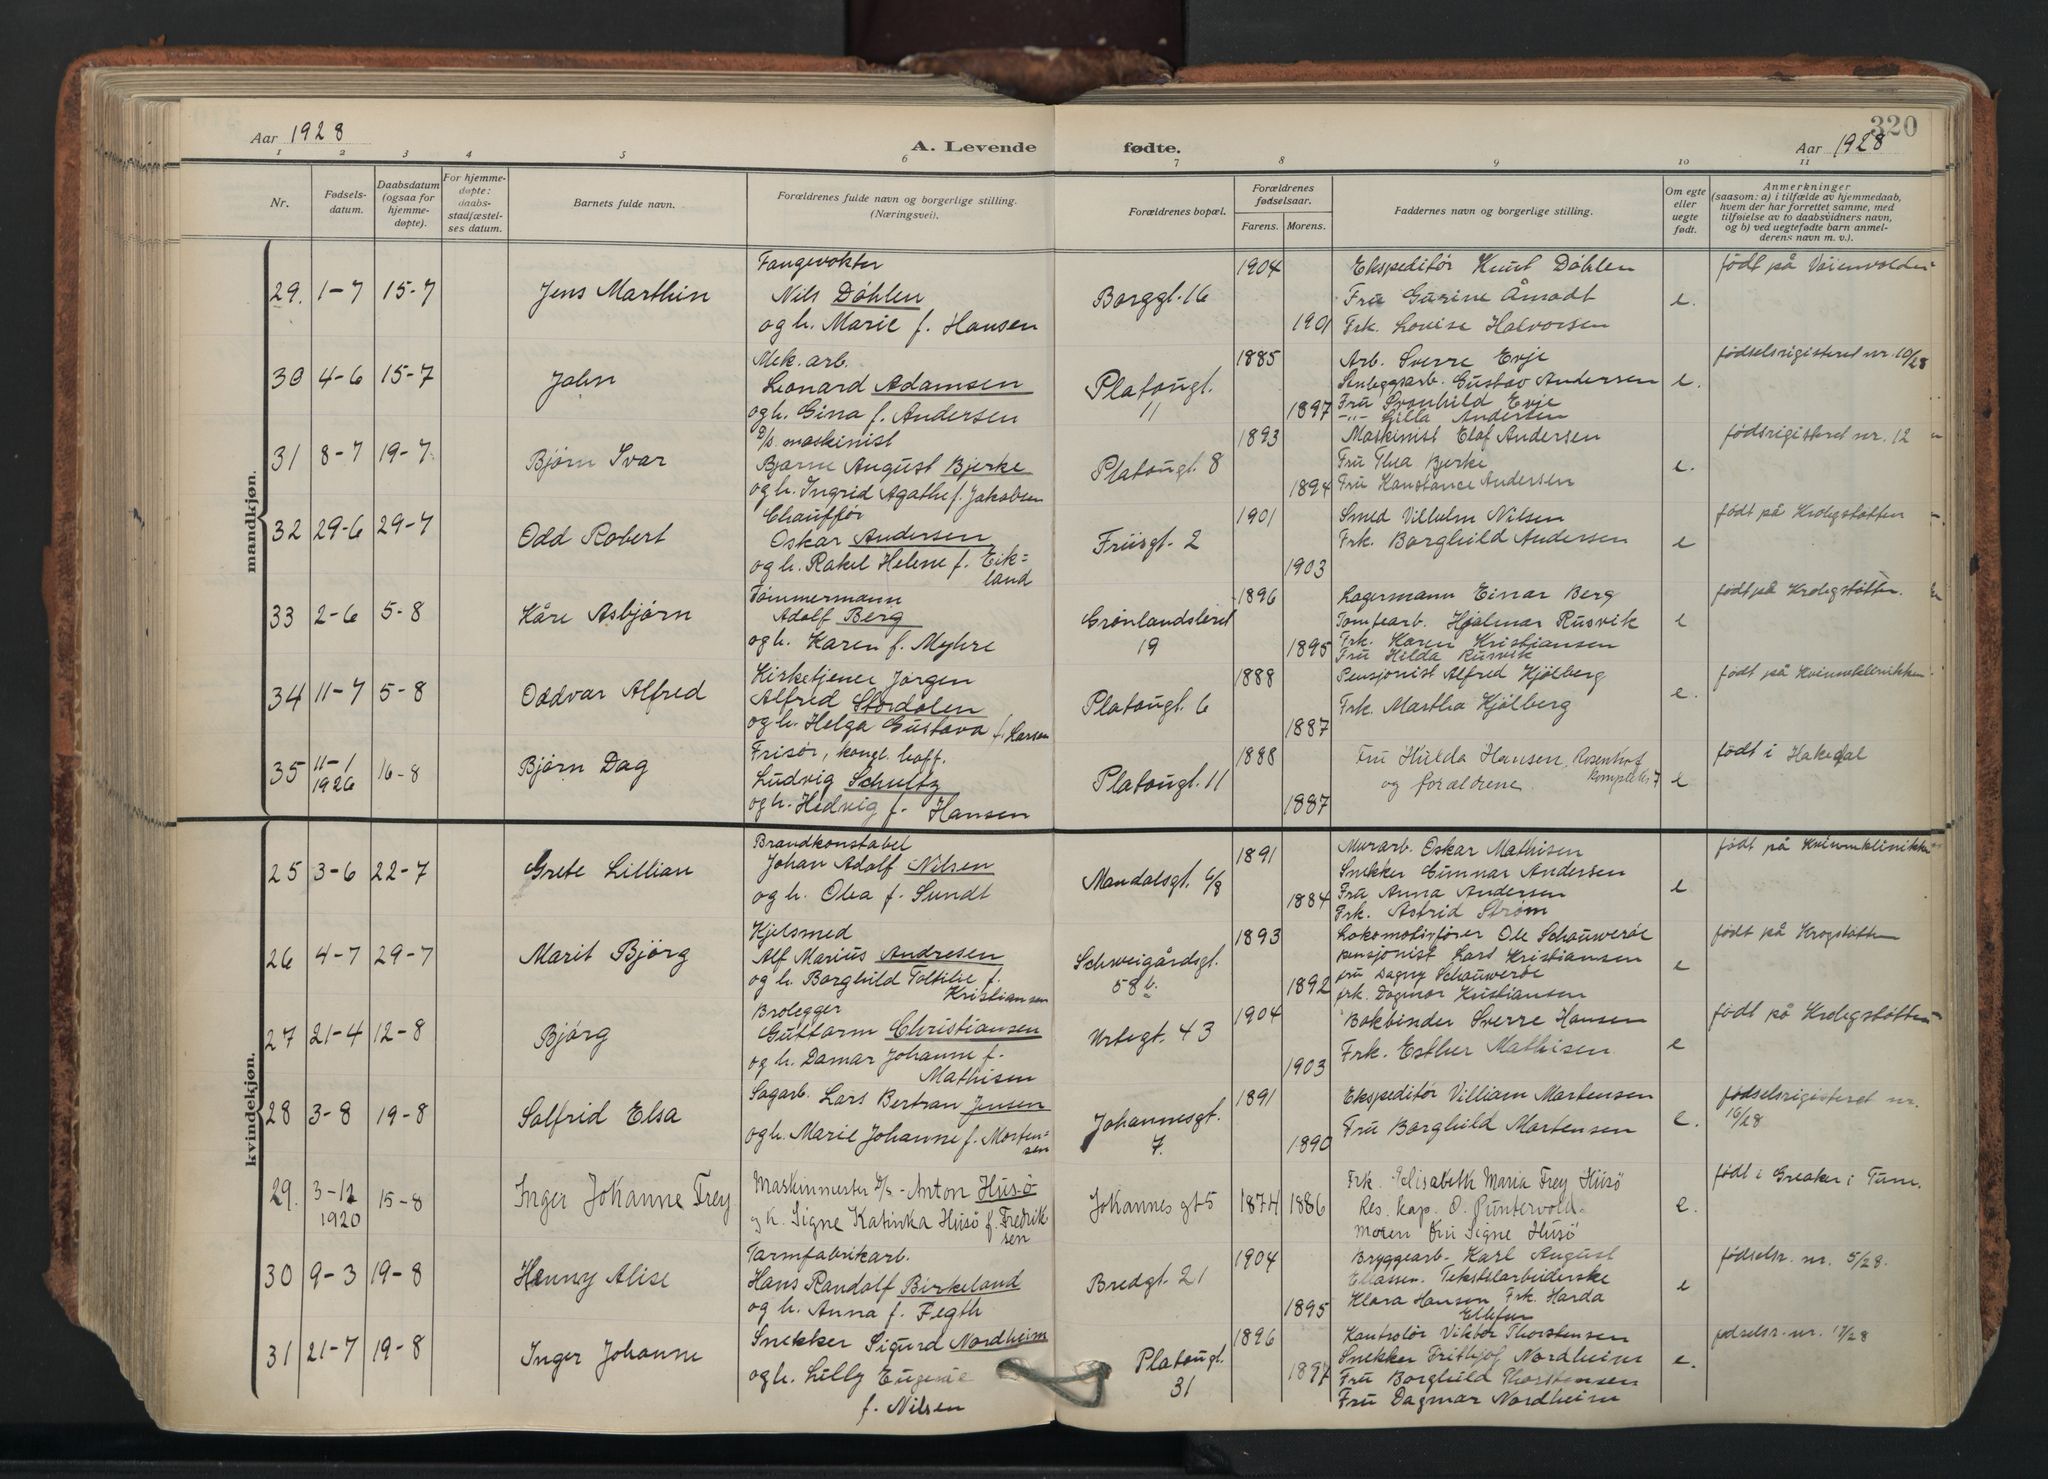 320
Aar 1928
A. Levende
fødte.
Aar 1928
1 2 3 4 5 6 7 8 9 10 11
Nr.
Fødsels-
datum.
Daabsdatum
(ogsaa for
hjemme-
døpte).
For hjemme-
døpte:
daabs-
stadfæstel-
ses datum.
Barnets fulde navn.
Forældrenes fulde navn og borgerlige stilling.
(Næringsvei).
Forældrenes bopæl.
Forældrenes
fødselsaar.
Farens. Morens.
Faddernes navn og borgerlige stilling.
Om egte
eller
uegte
født.
Anmerkninger
(saasom: a) i tilfælde av hjemmedaab,
hvem der har forrettet samme, med
tilføielse av to daabsvidners navn,
og b) ved uegtefødte barn anmel-
derens navn m. v.).
mandkjøn.
29. 1-7 15-7 Jens Marthin
Fangevokter
Nils Döhlen
og h. Marie f. Hansen
Borggt. 16
1904
1901
Ekspeditør Knut Döhlen
Fru Gurine Åmodt
Frk. Lovise Halvorsen
e.
født på
30 4-6 15-7 John
Mek. arb.
Leonard Adamsen
og h. Gina f. Andersen
Platougt.
11
1885
1897
Arb. Sverre Evje
Anleggsarb. Gustav Andersen
Fru Svanhild Evje
-"- Gilla Andersen
e.
fødselsrigisteret nr. 10/28
31 8-7 19-7 Bjørn Ivar
D/s maskinist
Bjarne August Bjerke
og h. Ingrid Agathe f. Jakobsen
Platougt. 8
1893
1894
Maskinist Elof Andersen
Fru Thea Bjerke
Fru Konstance Andersen
e.
fødsrigisteret nr. 12
32 29-6 29-7 Odd Robert
Chauffør
Oskar Andersen
og h. Rakel Helene f. Eik=
land
Friisgt. 2
1901
1903
Smed Vilhelm Nilsen
Frk. Borghild Andersen
e
født på Krohgstøtten
33 2-6 5-8 Kåre Asbjørn
Tømmermann
Adolf Berg
og h. Karen f. Myhre
Grønlandsleret
19
1896
1895
Lagermann Einar Berg
Tomtearb. Hjalmar Rusvik
Frk. Karen Kristiansen
Fru Hilda Rusvik
e
født på Krohgstøtten.
34 11-7 5-8 Oddvar Alfred
Kirketjener Jørgen
Alfred Stordalen
og h. Helga Gustava f. Larsen
Platougt. 6
1888
1887
Pensjonist Alfred Hjölberg
Frk. Martha Hjölberg
e.
født på Kvinneklinikken
35 11-1
1926
16-8 Bjørn Dag
Frisør, kongl. hoff.
Ludvig Schultz
og h. Hedvig f. Hansen
Platougt. 11
1888
1887
Fru Hulda Hansen, Rosenhof
og foreldrene.
e
født i Hakedal
kvindekjøn.
25 3-6 22-7 Grete Lillian
Brandkonstabel
Johan Adolf Nilsen
og h. Olea f. Sundt
Mandalsgt. 6/8
1891
1884
Murarb. Oskar Mathisen
Snekker Gunnar Andersen
Fru Anna Andersen
Frk. Astrid Strøm
e
født på Kvinneklinikken
26 4-7 29-7 Marit Bjørg
Hjelsmed
Alf Marius Andresen
og h. Borghild Toltilie f.
Kristiansen
Schweigårdsgt.
58 b.
1893
1892
Lokomotivfører Ole Schauwerøe
pensjonist Lars Kristiansen
fru Dagny Schauwerøe
frk. Dagmar Kristiansen
e
født på Krogstøtten
27 21-4 12-8 Bjørg
Brolegger
Guttorm Christiansen
og h. Damar Johanne f.
Mathisen
Urtegt. 43
1904
1903
Bokbinder Sverre Hansen
Frk. Esther Mathisen
e
født på Krohgstøtten
28 3-8 19-8 Solfrid Elsa
Sagarb. Lars Bertran Jensen
og h. Marie Johanne f. Morten=
sen
Johannesgt.
7.
1891
1890
Ekspeditør Villiam Mortensen
Fru Borghild Mortensen
e.
fødselsrigisteret nr.
16/28
29. 3-12
1920
15-8 Inger Johanne Frey
Maskinmester D/s - Anton Husö
og h. Signe Katinka Husö f. Fredrik
sen
Johannesgt 5
1874 1886
Frk. Elisabeth Maria Frey Husö
Res. kap. O. Puntervold.
moren fru Signe Husö
e.
født i Greaker i Tune.
30 9-3 19-8 Henny Alise
Tarmfabrikarb.
Hans Randolf Birkeland
og h. Anna f. Fegth
Bredgt. 21
1904
1895
Bryggearb. Karl August
Eliassen. Tekstilarbeiderske
Klara Hansen Frk. Harda
e
fødselsr. nr. 5/28.
31 21-7 19-8 Inger Johanne
Snekker Sigurd Nordheim
og h. Lilly Eugenie
f. Nilsen
Platougt.
31
1896
1897
Kontrolør Viktor Thorstensen
Snekker Frithjof Nordheim
Fru Borghild Thorstensen
Fru Dagmar Nordheim
e.
fødselsr. nr. 17/28